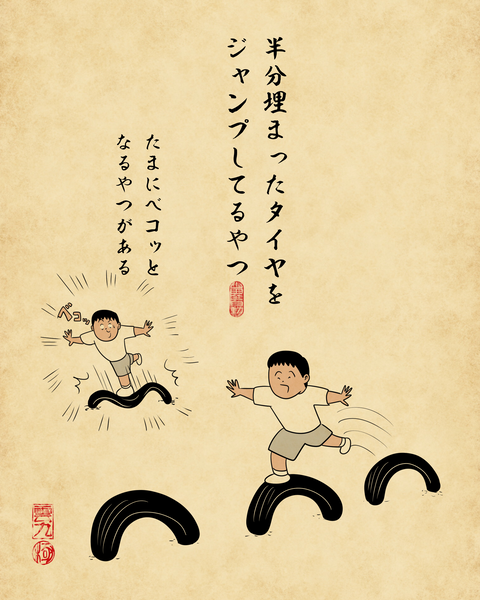 半分埋まったタイヤを
ジャンプしてるやつ
たまにベコッと
なるやつがある
ベコッ